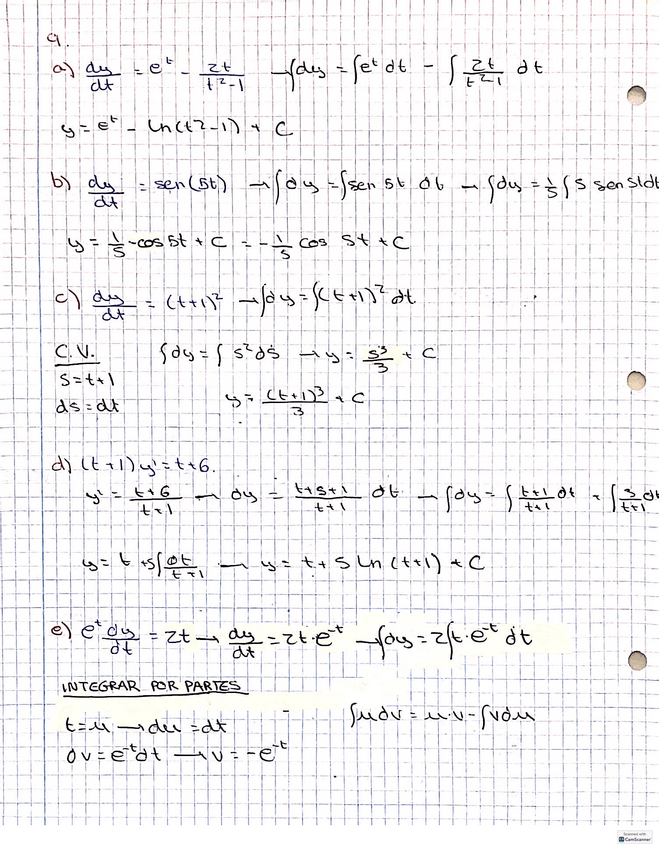 9.
a) dy/dt = e^t - 2t/(t²-1) → ∫dy = ∫e^t dt - ∫ 2t/(t²-1) dt
y = e^t - Ln(t²-1) + C
b) dy/dt = sen(5t) → ∫dy = ∫sen 5t dt → ∫dy = 1/5 ∫5 sen 5t dt
y = 1/5 · -cos 5t + C = -1/5 cos 5t + C
c) dy/dt = (t+1)² → ∫dy = ∫(t+1)² dt
C.V. ∫dy = ∫ s² ds → y = s³/3 + C
s = t+1
ds = dt y = (t+1)³/3 + C
d) (t+1) y' = t+6.
y' = (t+6)/(t+1) → dy = (t+5+1)/(t+1) dt → ∫dy = ∫ (t+1)/(t+1) dt + ∫ 5/(t+1) dt
y = t + 5∫ dt/(t+1) → y = t + 5 Ln(t+1) + C
e) e^t dy/dt = 2t → dy/dt = 2t·e^-t → ∫dy = 2∫t·e^-t dt
INTEGRAR POR PARTES
t = u → du = dt ∫udv = u·v - ∫vdu
dv = e^-t dt → v = -e^-t
Scanned with
CS CamScanner